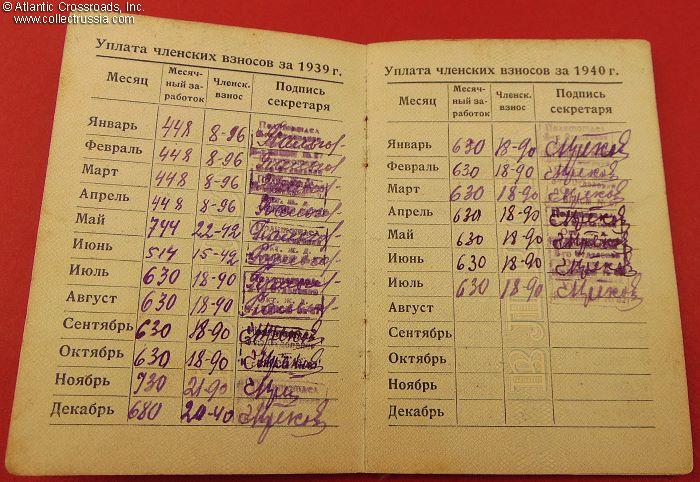 © Atlantic Crossroads, Inc.
www.collectrussia.com
Уплата членских взносов за 1939 г.
Месяц Месяч-ный за-работок Членск. взнос Подпись секретаря
Январь 448 8-96
Февраль 448 8-96
Март 448 8-96
Апрель 448 8-96
Май 744 22-42
Июнь 514 15-42
Июль 630 18-90
Август 630 18-90
Сентябрь 630 18-90
Октябрь 630 18-90
Ноябрь 730 21-90
Декабрь 680 20-40
Уплата членских взносов за 1940 г.
Месяц Месяч-ный за-работок Членск. взнос Подпись секретаря
Январь 630 18-90
Февраль 630 18-90
Март 630 18-90
Апрель 630 18-90
Май 630 18-90
Июнь 630 18-90
Июль 630 18-90
Август
Сентябрь
Октябрь
Ноябрь
Декабрь